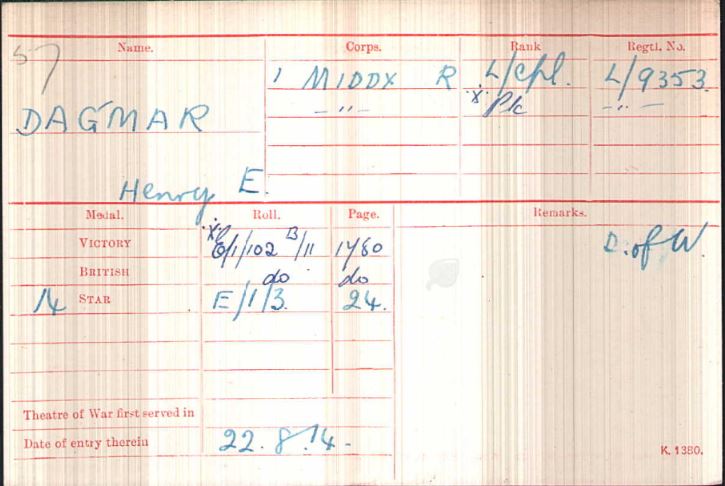 57
Name. Corps. Rank Regtl. No.
1 MIDDX R L/Cpl. L/9353.
DAGMAR —"— X Pte —"—
Henry E.
Medal. Roll. Page. Remarks.
VICTORY X E/1/102 B/11 1760 D. of W.
BRITISH do do
14 STAR E/1/3. 24.
Theatre of War first served in
Date of entry therein 22.8.14-
K. 1380.